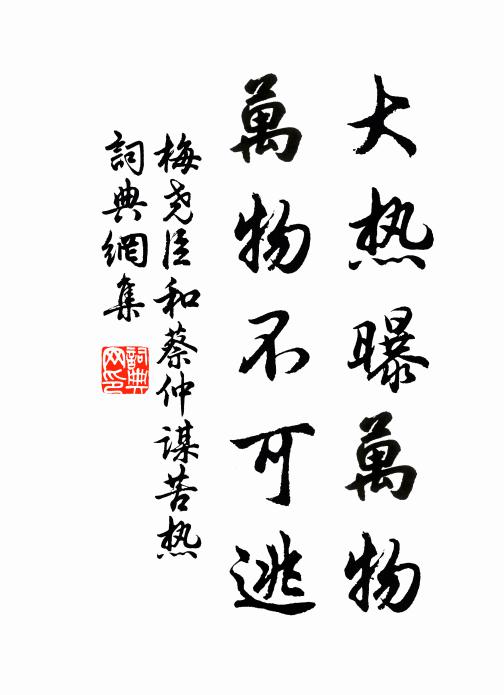 大热曝萬物
萬物不可逃
梅尧臣和蔡仲謀苦热
詞典網集
詞典网印